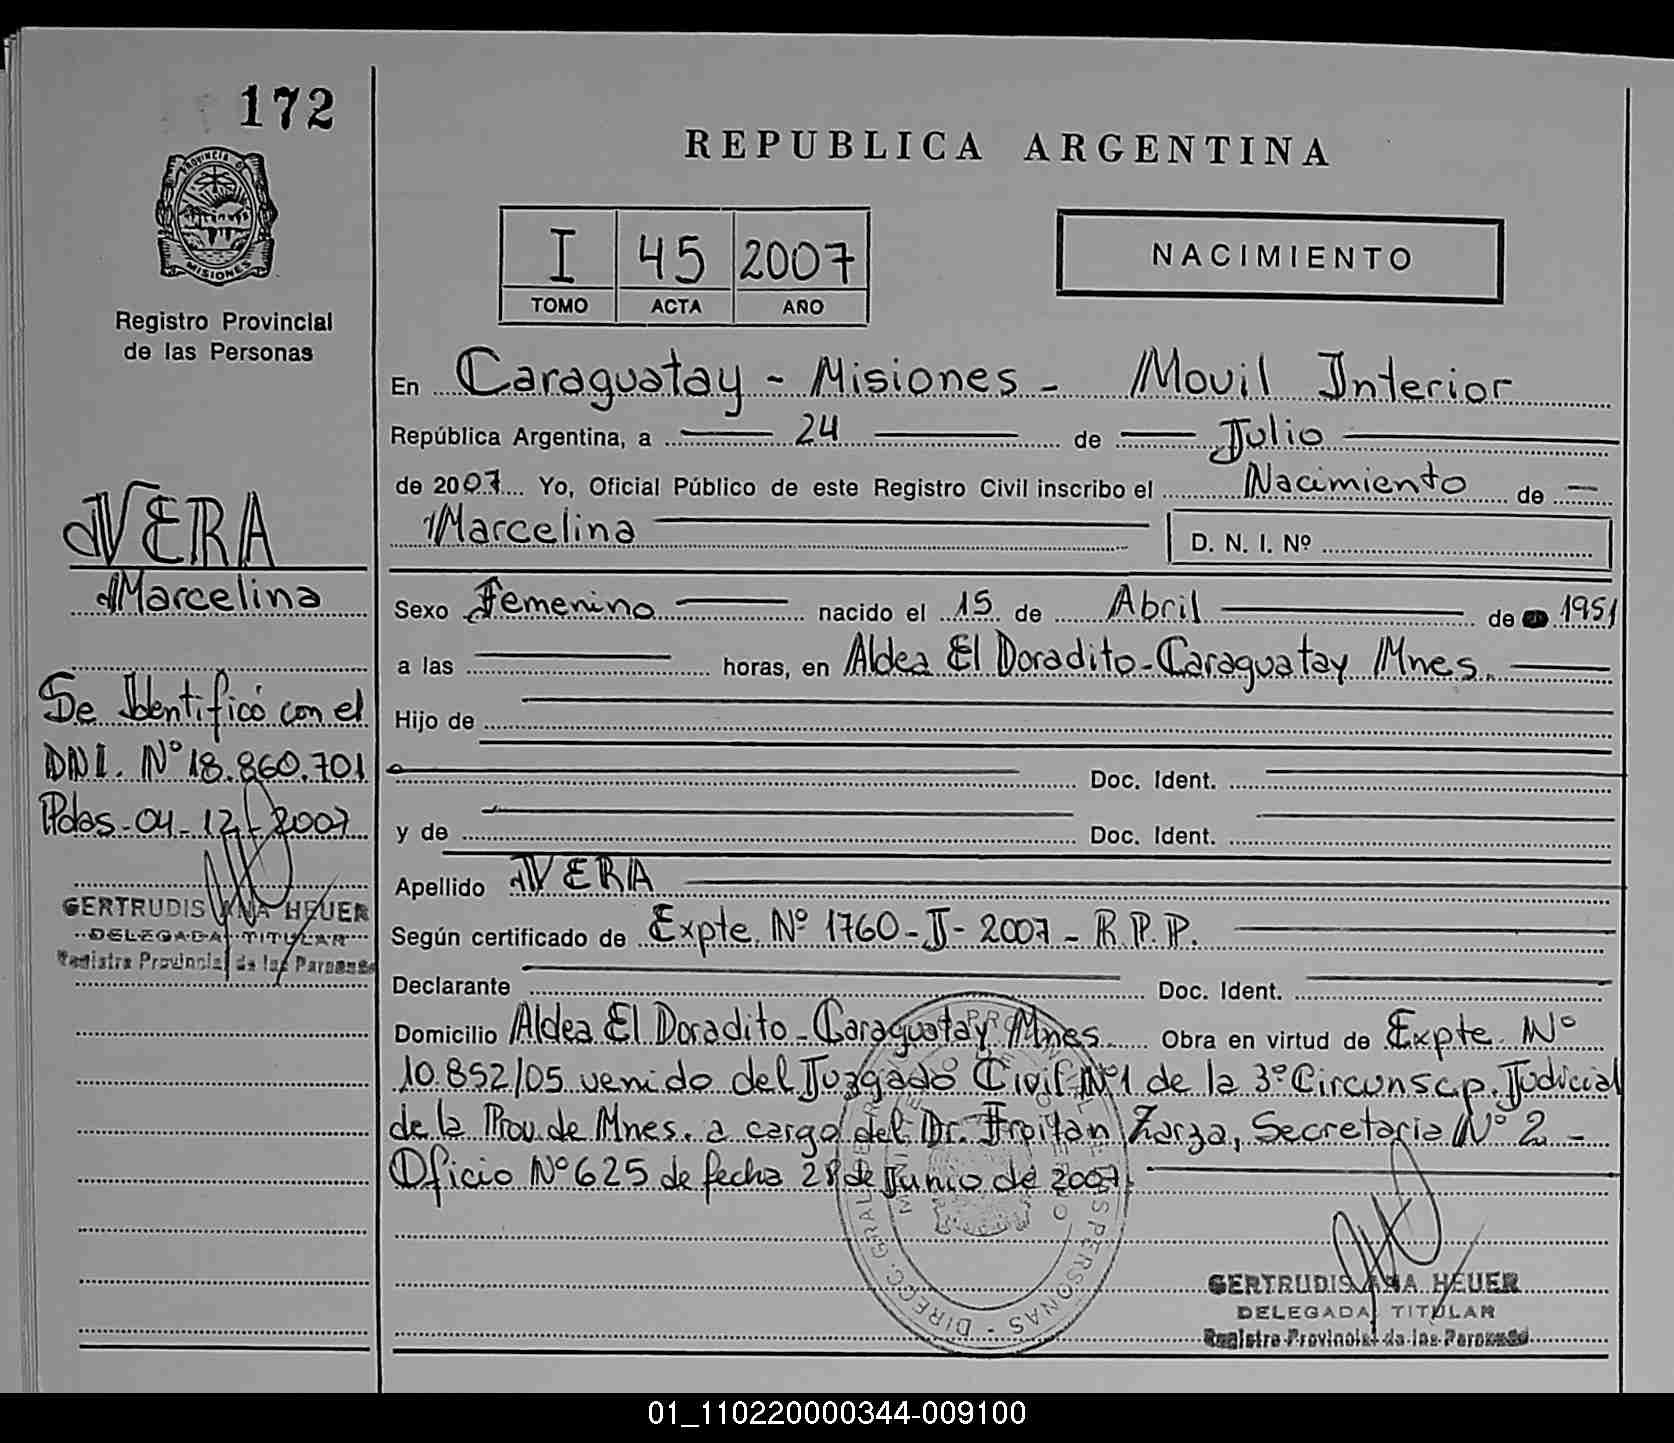 172
PROVINCIA DE
MISIONES
Registro Provincial
de las Personas
REPUBLICA ARGENTINA
I 45 2007
TOMO ACTA AÑO
NACIMIENTO
En Caraguatay - Misiones - Movil Interior
República Argentina, a 24 de Julio
de 2007 Yo, Oficial Público de este Registro Civil inscribo el Nacimiento de
Marcelina
D. N. I. Nº
Sexo Femenino nacido el 15 de Abril de 1951
a las horas, en Aldea El Doradito - Caraguatay Mnes.
Hijo de
Doc. Ident.
y de Doc. Ident.
Apellido VERA
Según certificado de Expte. Nº 1760 - J - 2007 - R.P.P.
Declarante Doc. Ident.
Domicilio Aldea El Doradito - Caraguatay Mnes. Obra en virtud de Expte. Nº
10.852/05 venido del Juzgado Civil Nº1 de la 3º Circunscp. Judicial
de la Prov. de Mnes. a cargo del Dr. Froilan Zarza, Secretaria Nº 2 -
Oficio Nº 625 de fecha 28 de Junio de 2007.
GERTRUDIS ANA HEUER
DELEGADA TITULAR
Registro Provincial de las Personas
VERA
Marcelina
Se Identificó con el
DNI. Nº 18.860.701
Pdas - 04 - 12 - 2007
GERTRUDIS ANA HEUER
DELEGADA TITULAR
Registro Provincial de las Personas
01_110220000344-009100